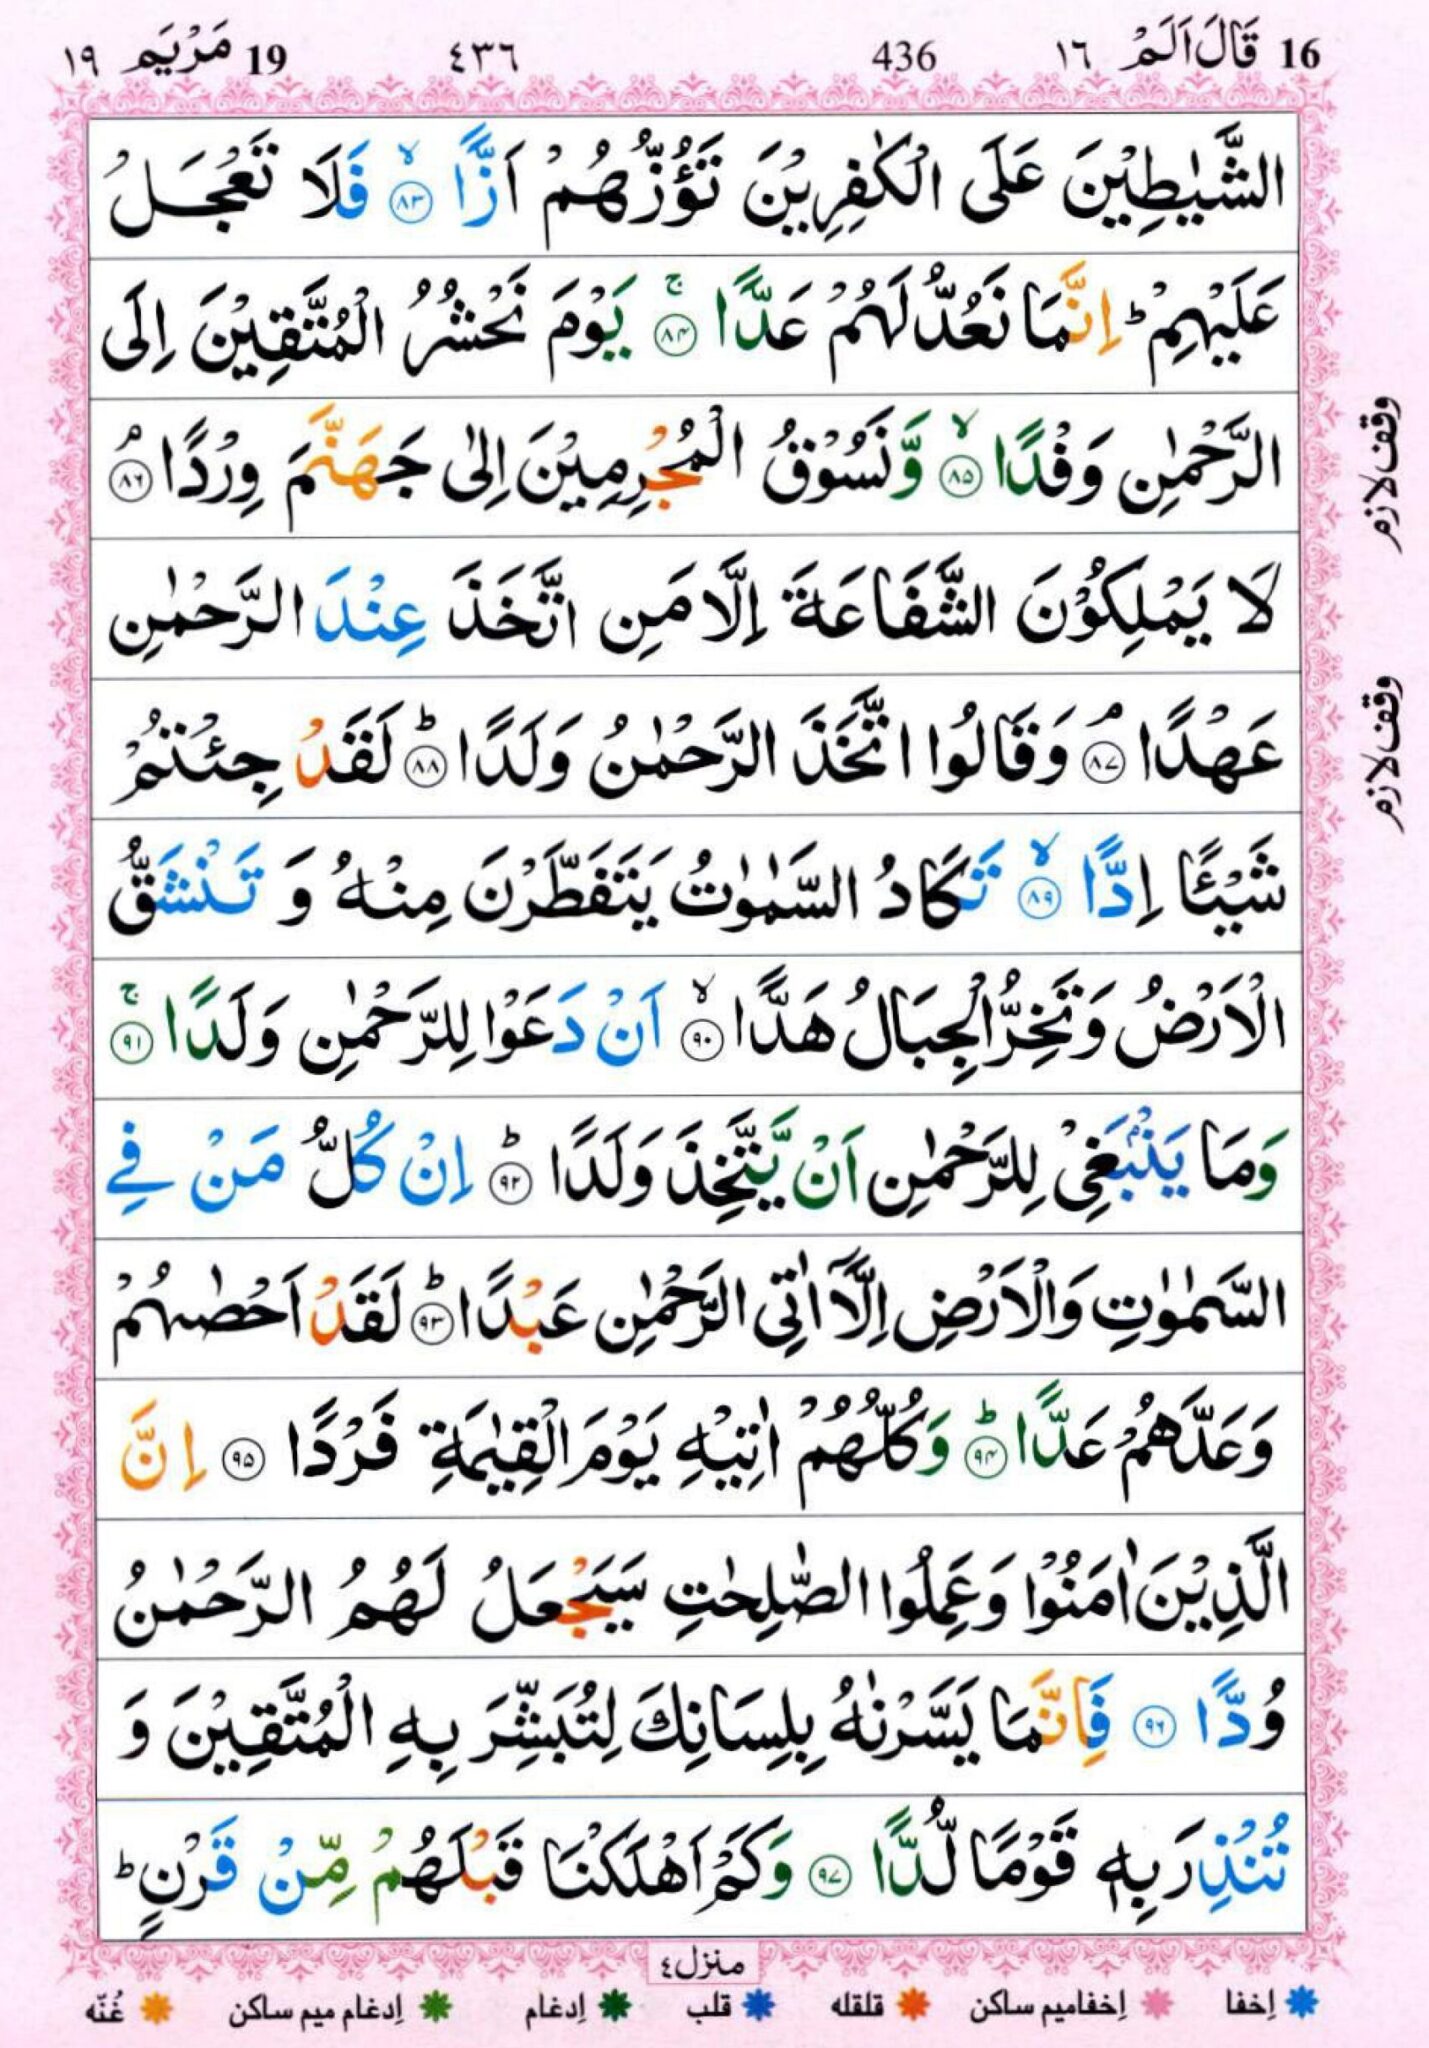 16 قَالَ اَلَمْ ١٦ 436 ٤٣٦ 19 مَرْيَم ١٩
الشَّيٰطِيْنَ عَلَى الْكٰفِرِيْنَ تَؤُزُّهُمْ اَزًّا ۙ‏﴿۸۳﴾ فَلَا تَعْجَلْ
عَلَيْهِمْ ؕ اِنَّمَا نَعُدُّ لَهُمْ عَدًّا ۚ‏﴿۸۴﴾ يَوْمَ نَحْشُرُ الْمُتَّقِيْنَ اِلَى
الرَّحْمٰنِ وَفْدًا ۙ‏﴿۸۵﴾ وَّنَسُوْقُ الْمُجْرِمِيْنَ اِلٰى جَهَنَّمَ وِرْدًا ۘ‏﴿۸۶﴾
وقف لازم
لَا يَمْلِكُوْنَ الشَّفَاعَةَ اِلَّا مَنِ اتَّخَذَ عِنْدَ الرَّحْمٰنِ
عَهْدًا ۘ‏﴿۸۷﴾ وَقَالُوا اتَّخَذَ الرَّحْمٰنُ وَلَدًا ؕ‏﴿۸۸﴾ لَقَدْ جِئْتُمْ
وقف لازم
شَيْئًا اِدًّا ۙ‏﴿۸۹﴾ تَكَادُ السَّمٰوٰتُ يَتَفَطَّرْنَ مِنْهُ وَ تَنْشَقُّ
الْاَرْضُ وَتَخِرُّ الْجِبَالُ هَدًّا ۙ‏﴿۹۰﴾ اَنْ دَعَوْا لِلرَّحْمٰنِ وَلَدًا ۚ‏﴿۹۱﴾
وَمَا يَنْۢبَغِىْ لِلرَّحْمٰنِ اَنْ يَّتَّخِذَ وَلَدًا ؕ‏﴿۹۲﴾ اِنْ كُلُّ مَنْ فِى
السَّمٰوٰتِ وَالْاَرْضِ اِلَّاۤ اٰتِى الرَّحْمٰنِ عَبْدًا ؕ‏﴿۹۳﴾ لَقَدْ اَحْصٰٮهُمْ
وَعَدَّهُمْ عَدًّا ؕ‏﴿۹۴﴾ وَكُلُّهُمْ اٰتِيْهِ يَوْمَ الْقِيٰمَةِ فَرْدًا ﴿۹۵﴾ اِنَّ
الَّذِيْنَ اٰمَنُوْا وَعَمِلُوا الصّٰلِحٰتِ سَيَجْعَلُ لَهُمُ الرَّحْمٰنُ
وُدًّا ﴿۹۶﴾ فَاِنَّمَا يَسَّرْنٰهُ بِلِسَانِكَ لِتُبَشِّرَ بِهِ الْمُتَّقِيْنَ وَ
تُنْذِرَ بِهٖ قَوْمًا لُّدًّا ﴿۹۷﴾ وَكَمْ اَهْلَكْنَا قَبْلَهُمْ مِّنْ قَرْنٍ ؕ
منزل ٤
اِخفا اِخفامیم ساکن قلقله قلب اِدغام اِدغام میم ساکن غُنّه